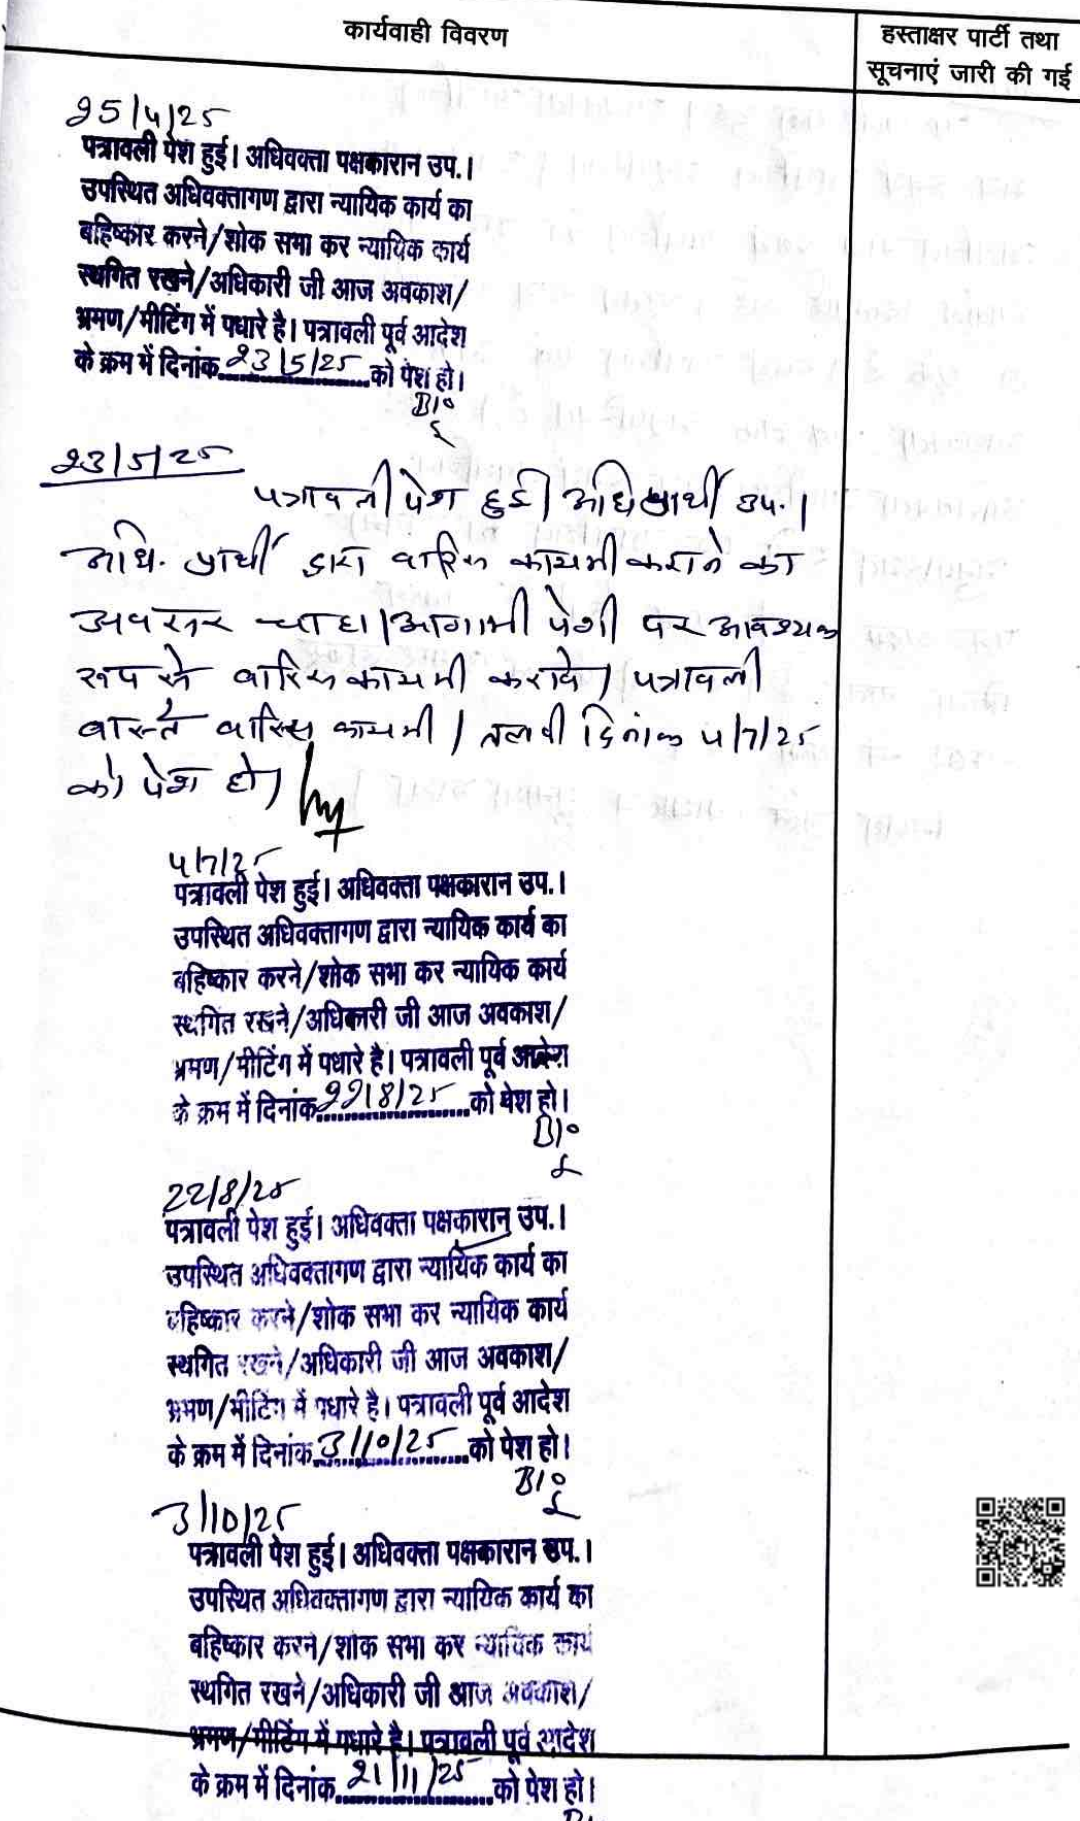 कार्यवाही विवरण
हस्ताक्षर पार्टी तथा
सूचनाएं जारी की गई
25/4/25
पत्रावली पेश हुई। अधिवक्ता पक्षकारान उप.।
उपस्थित अधिवक्तागण द्वारा न्यायिक कार्य का
बहिष्कार करने/शोक सभा कर न्यायिक कार्य
स्थगित रखने/अधिकारी जी आज अवकाश/
भ्रमण/मीटिंग में पधारे है। पत्रावली पूर्व आदेश
के क्रम में दिनांक 23/5/25 को पेश हो।
23/5/25
पत्रावली पेश हुई। अधि प्रार्थी उप.।
अधि. प्रार्थी द्वारा वारिस कायमी कराने का
अवसर चाहा। आगामी पेशी पर आवश्यक
रूप से वारिस कायमी करावे। पत्रावली
वास्ते वारिस कायमी / तलबी दिनांक 4/7/25
को पेश हो।
4/7/25
पत्रावली पेश हुई। अधिवक्ता पक्षकारान उप.।
उपस्थित अधिवक्तागण द्वारा न्यायिक कार्य का
बहिष्कार करने/शोक सभा कर न्यायिक कार्य
स्थगित रखने/अधिकारी जी आज अवकाश/
भ्रमण/मीटिंग में पधारे है। पत्रावली पूर्व आदेश
के क्रम में दिनांक 22/8/25 को पेश हो।
22/8/25
पत्रावली पेश हुई। अधिवक्ता पक्षकारान उप.।
उपस्थित अधिवक्तागण द्वारा न्यायिक कार्य का
बहिष्कार करने/शोक सभा कर न्यायिक कार्य
स्थगित रखने/अधिकारी जी आज अवकाश/
भ्रमण/मीटिंग में पधारे है। पत्रावली पूर्व आदेश
के क्रम में दिनांक 3/10/25 को पेश हो।
3/10/25
पत्रावली पेश हुई। अधिवक्ता पक्षकारान उप.।
उपस्थित अधिवक्तागण द्वारा न्यायिक कार्य का
बहिष्कार करने/शोक सभा कर न्यायिक कार्य
स्थगित रखने/अधिकारी जी आज अवकाश/
भ्रमण/मीटिंग में पधारे है। पत्रावली पूर्व आदेश
के क्रम में दिनांक 21/11/25 को पेश हो।